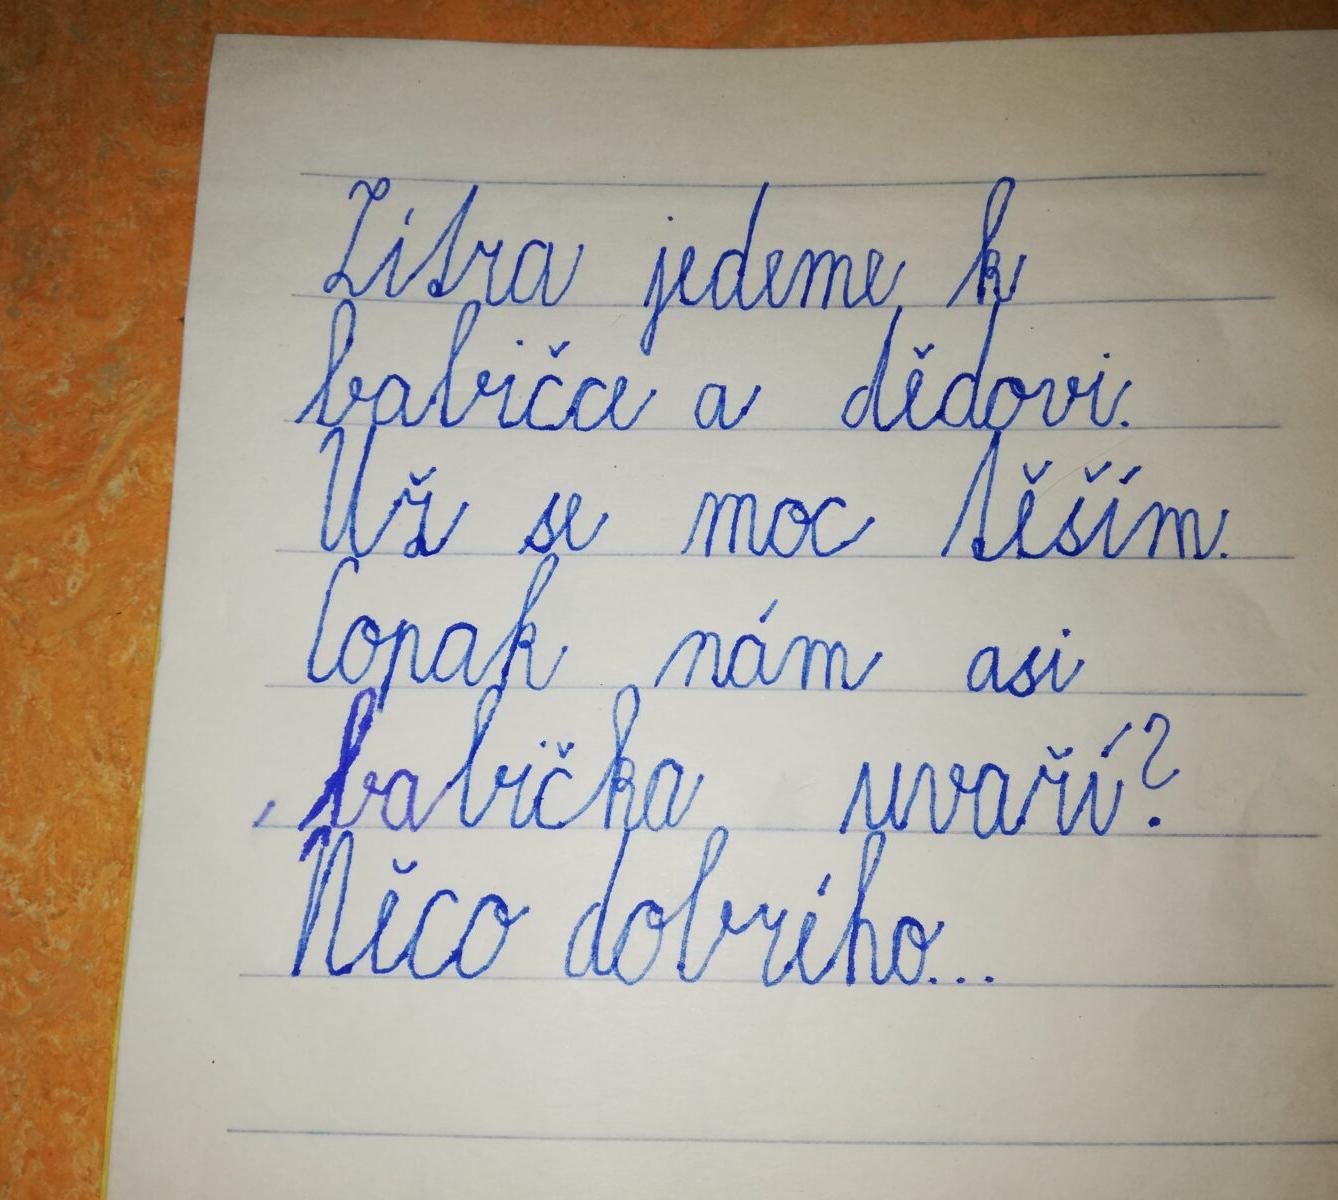 Zítra jedeme k
babičce a dědovi.
Už se moc těším.
Copak nám asi
babička uvaří?
Něco dobrého...